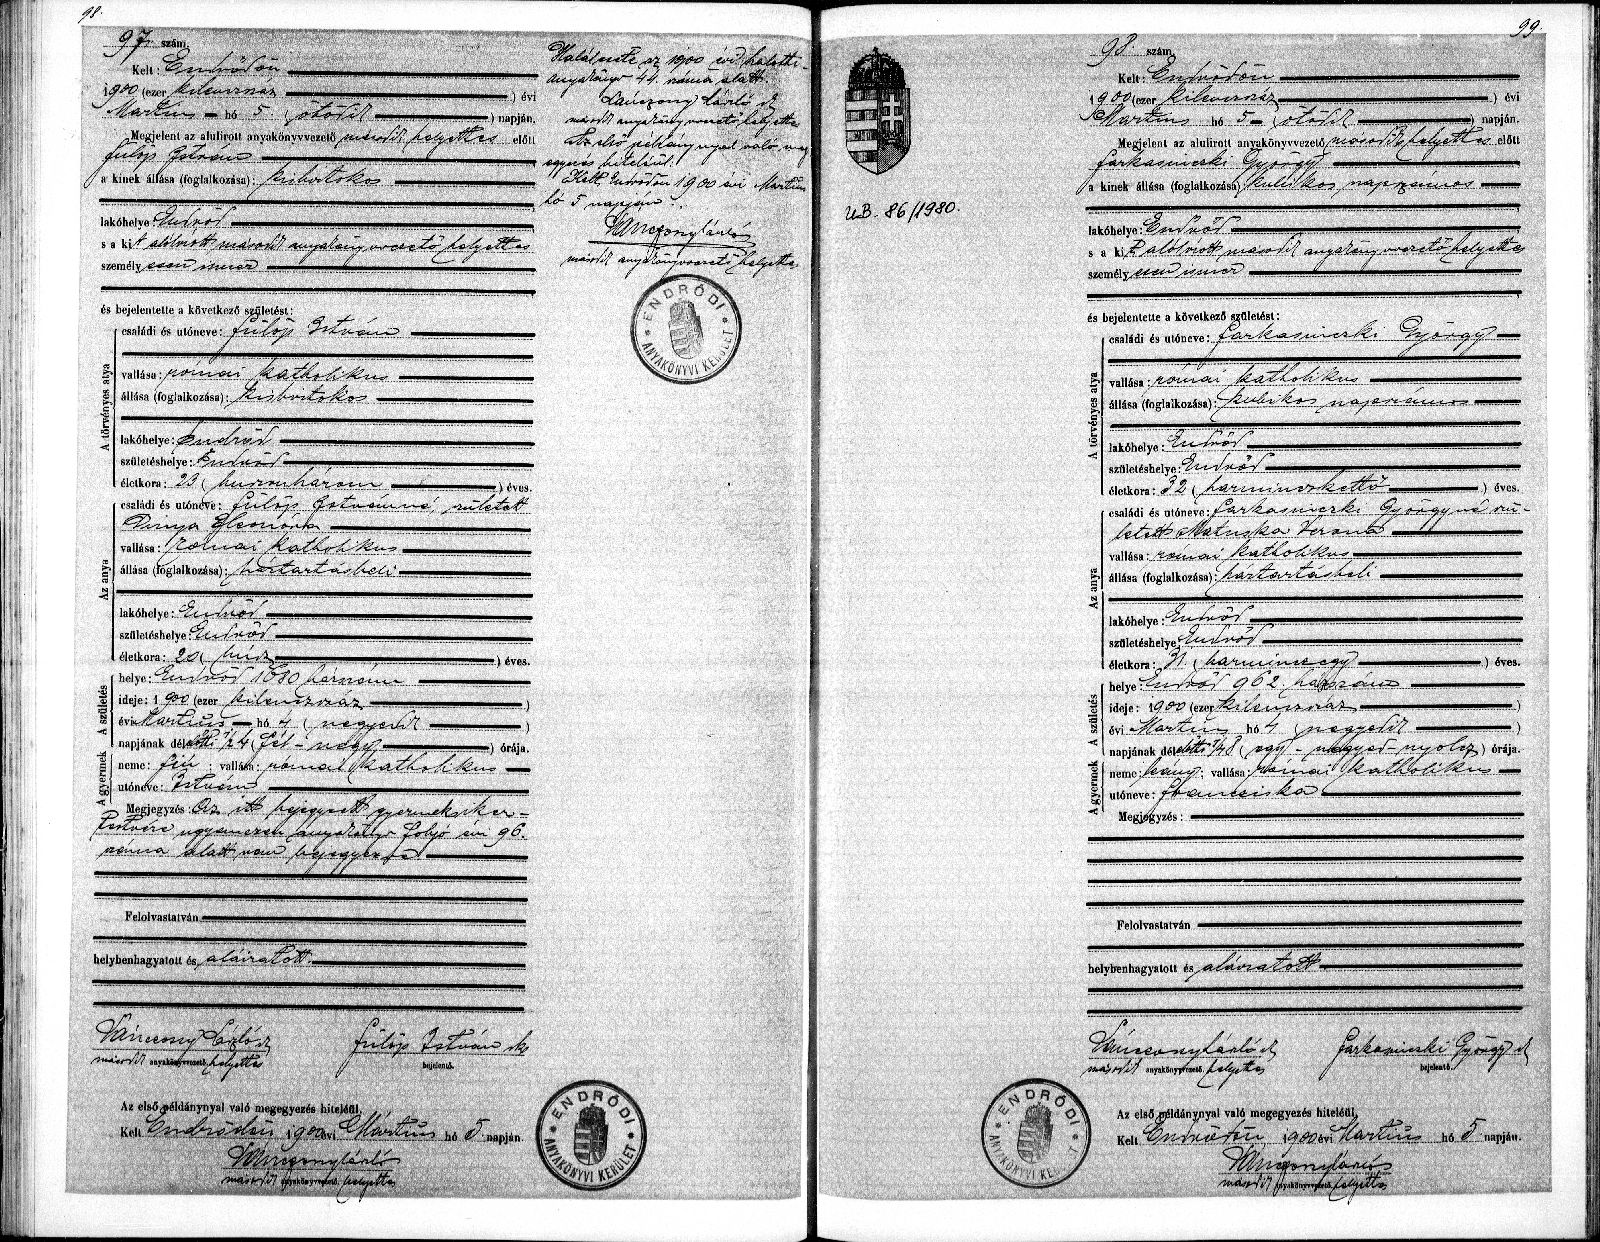 98.
97. szám.
Kelt: Endrődön
1900 (ezer kilenczszáz) évi
Martius hó 5. (ötödik) napján.
Megjelent az alulirott anyakönyvvezető második helyettes előtt
Fülöp István
a kinek állása (foglalkozása): kisbirtokos
lakóhelye Endrőd
s a kit alólirott második anyakönyvvezető helyettes
személyesen ismer
és bejelentette a következő születést:
A törvényes atya
családi és utóneve: Fülöp István
vallása: római katholikus
állása (foglalkozása): kisbirtokos
lakóhelye: Endrőd
születéshelye: Endrőd
életkora: 23 (huszonhárom) éves.
Az anya
családi és utóneve: Fülöp Istvánné, született
Dinya Eleonóra
vallása: római katholikus
állása (foglalkozása): háztartásbeli
lakóhelye: Endrőd
születéshelye: Endrőd
életkora: 20 (húsz) éves.
A születés
helye: Endrőd 1080 házszám
ideje: 1900 (ezer kilenczszáz)
évi Martius hó 4 (negyedik)
napjának dél 1/2 4 (fél-négy) órája.
A gyermek
neme: fiú; vallása: római katholikus
utóneve: István
Megjegyzés: Az itt bejegyzett gyermek iker-
testvére ugyanezen anyakönyv folyó évi 96.
száma alatt van bejegyezve
Felolvastatván
helybenhagyatott és aláiratott.
Vánczony László sk
második anyakönyvvezető helyettes
Fülöp István sk
bejelentő.
Az első példánynyal való megegyezés hiteléül.
Kelt Endrődön 1900 évi Mártius hó 5 napján.
Vánczony László
második anyakönyvvezető helyettes
ENDRŐDI
ANYAKÖNYVI KERÜLET
Halálesete az 1900 évi halotti
anyakönyv 44. száma alatt.
Vánczony László sk
második anyakönyvvezető helyettes
Az első példánynyal való meg
egyezés hiteléül.
Kelt, Endrődön 1900 évi Martius
hó 5 napján.
Vánczony László
második anyakönyvvezető helyettes
ENDRŐDI
ANYAKÖNYVI KERÜLET
U.B. 86/1980.
99.
98. szám.
Kelt: Endrődön
1900 (ezer kilenczszáz) évi
Martius hó 5 (ötödik) napján.
Megjelent az alulirott anyakönyvvezető második helyettes előtt
Farkasinszki György
a kinek állása (foglalkozása): kubikos napszámos
lakóhelye: Endrőd
s a kit alólirott második anyakönyvvezető helyettes
személyesen ismer
és bejelentette a következő születést:
A törvényes atya
családi és utóneve: Farkasinszki György
vallása: római katholikus
állása (foglalkozása): kubikos napszámos
lakóhelye: Endrőd
születéshelye: Endrőd
életkora: 32 (harminczkettő) éves.
Az anya
családi és utóneve: Farkasinszki Györgyné szü-
letett Matuska Verona
vallása: római katholikus
állása (foglalkozása): háztartásbeli
lakóhelye: Endrőd
születéshelye: Endrőd
életkora: 31 (harminczegy) éves.
A születés
helye: Endrőd 962. házszám
ideje: 1900 (ezer kilenczszáz)
évi Martius hó 4 (negyedik)
napjának délelőtti 1/4 8 (egy-negyed-nyolcz) órája.
A gyermek
neme: leány; vallása: római katholikus
utóneve: Francziska
Megjegyzés:
Felolvastatván
helybenhagyatott és aláiratott
Vánczony László sk
második anyakönyvvezető helyettes
Farkasinszki György sk
bejelentő.
Az első példánynyal való megegyezés hiteléül.
Kelt Endrődön 1900 évi Martius hó 5 napján.
Vánczony László
második anyakönyvvezető helyettes
ENDRŐDI
ANYAKÖNYVI KERÜLET